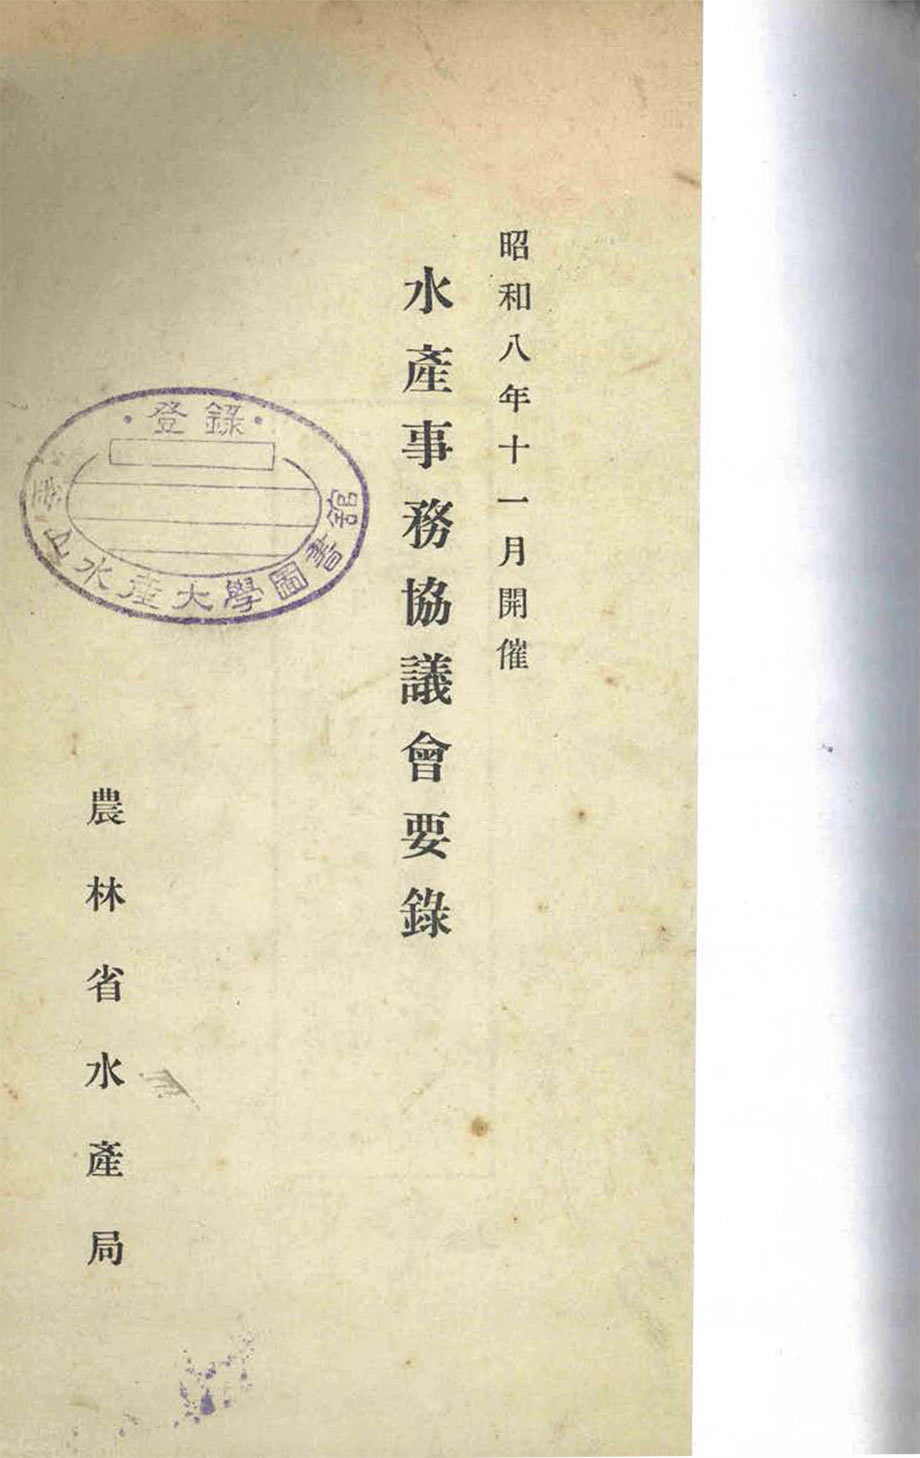 昭和八年十一月開催
水產事務協議會要錄
農林省水產局
登錄
釜山水產大學圖書館